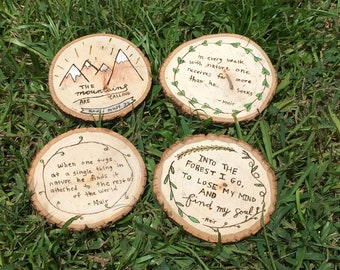 THE
mountains
ARE CALLING
& I must go
In every walk
with nature one
receives far more
than he seeks
- Muir
When one tugs
at a single thing in
nature he finds it
attached to the rest
of the world.
- Muir
INTO THE
FOREST I GO,
TO LOSE MY MIND
AND
find my soul
- Muir